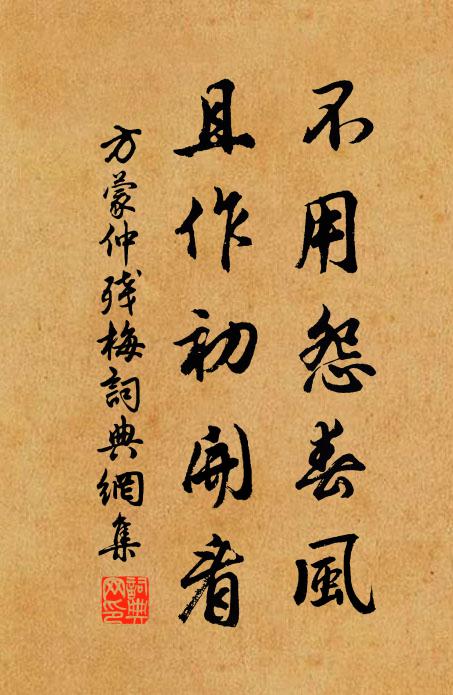 不用怨春風
且作初開看
方蒙仲殘梅詞典網集
詞典
网印